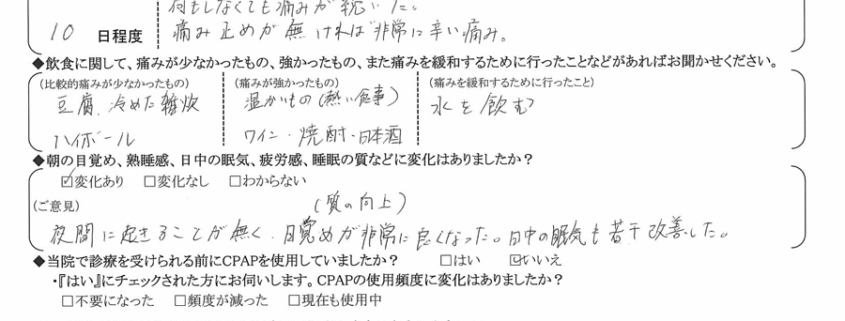 何もしなくても痛みが続いた。
10 日程度 痛み止めが無ければ非常に辛い痛み。
◆飲食に関して、痛みが少なかったもの、強かったもの、また痛みを緩和するために行ったことなどがあればお聞かせください。
(比較的痛みが少なかったもの) (痛みが強かったもの) (痛みを緩和するために行ったこと)
豆腐、冷めた雑炊 温かいもの(熱い食事) 水を飲む
ハイボール ワイン・焼酎・日本酒
◆朝の目覚め、熟睡感、日中の眠気、疲労感、睡眠の質などに変化はありましたか?
☑変化あり □変化なし □わからない
(ご意見) (質の向上)
夜間に起きることが無く、目覚めが非常に良くなった。日中の眠気も若干改善した。
◆当院で診療を受けられる前にCPAPを使用していましたか? □はい ☑いいえ
・『はい』にチェックされた方にお伺いします。CPAPの使用頻度に変化はありましたか?
□不要になった □頻度が減った □現在も使用中